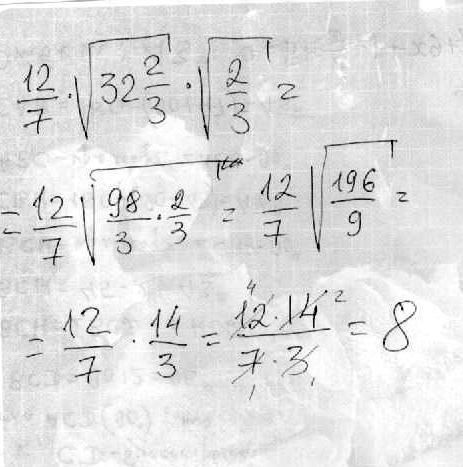 12/7 · √(32 2/3) · √(2/3) =
= 12/7 √(98/3 · 2/3) = 12/7 √(196/9) =
= 12/7 · 14/3 = (12 · 14)/(7 · 3) = 8